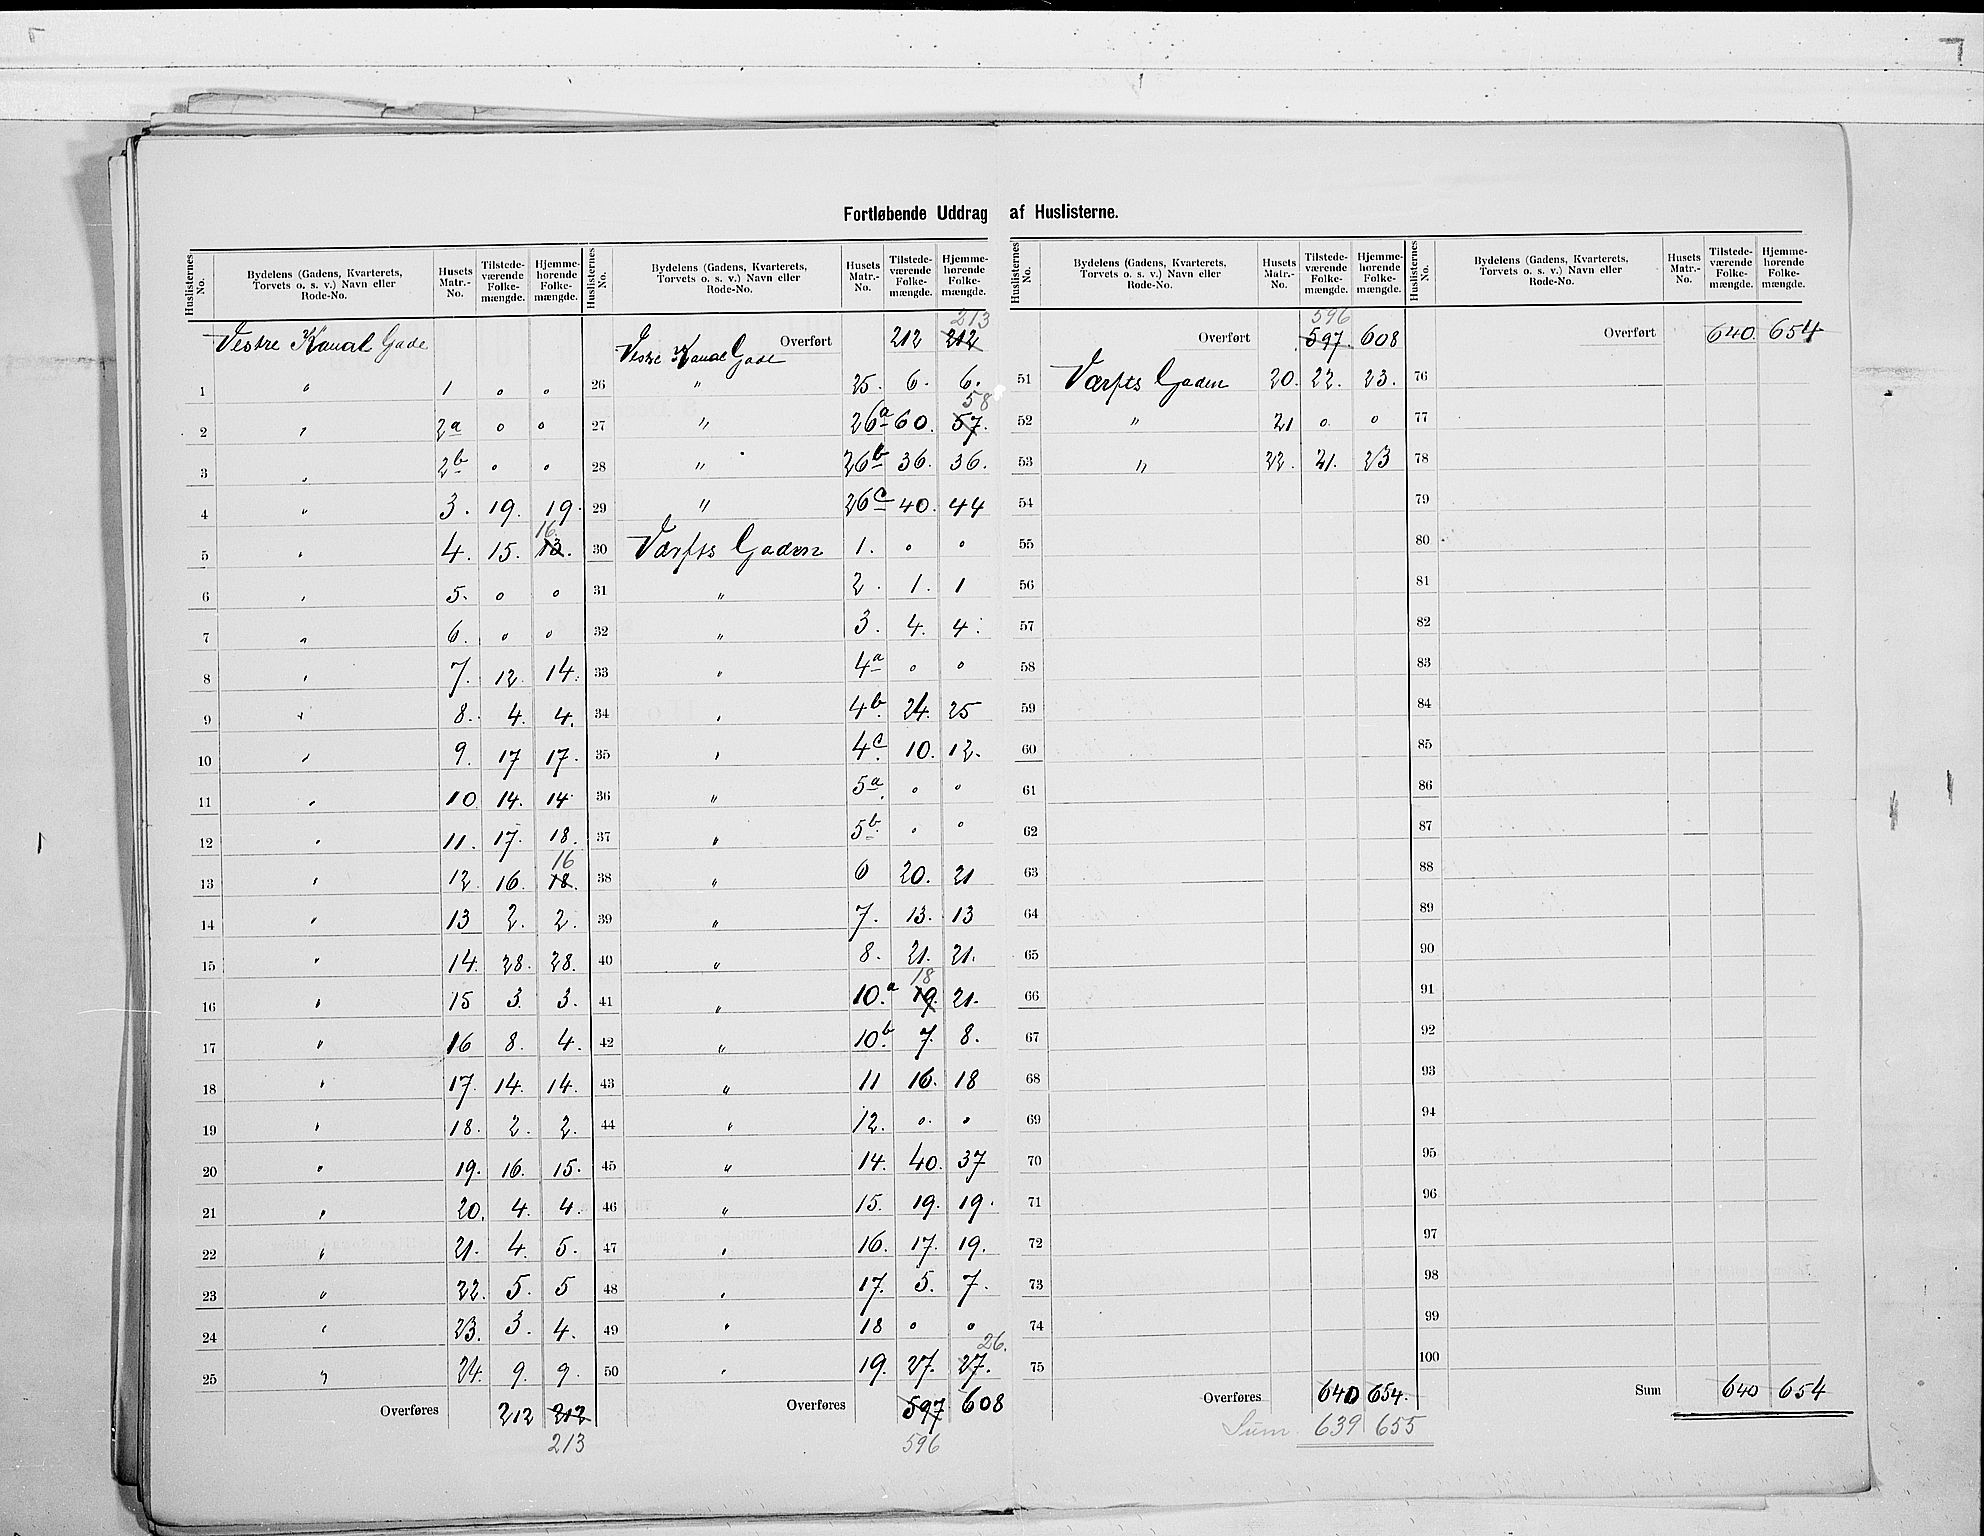 Fortløbende Uddrag af Huslisterne.
Huslisternes No. | Bydelens (Gadens, Kvarterets, Torvets o. s. v.) Navn eller Rode-No. | Husets Matr.-No. | Tilstedeværende Folkemængde. | Hjemmehørende Folkemængde.
Vestre Kanal Gade
1 " 1 0 0
2 " 2a 0 0
3 " 2b 0 0
4 " 3. 19. 19.
5 " 4. 15. 13. 16.
6 " 5. 0 0
7 " 6. 0 0
8 " 7. 12. 14.
9 " 8. 4. 4.
10 " 9. 17 17.
11 " 10 14. 14
12 " 11. 17. 18.
13 " 12. 16. 18. 16
14 " 13 2. 2.
15 " 14. 28. 28.
16 " 15 3. 3.
17 " 16 8. 4.
18 " 17. 14. 14.
19 " 18. 2. 2.
20 " 19. 16. 15.
21 " 20. 4. 4.
22 " 21. 4. 5.
23 " 22. 5. 5
24 " 23. 3. 4.
25 " 24. 9. 9.
Overføres 212 212
213
Huslisternes No. | Bydelens (Gadens, Kvarterets, Torvets o. s. v.) Navn eller Rode-No. | Husets Matr.-No. | Tilstedeværende Folkemængde. | Hjemmehørende Folkemængde.
213
Overført 212 212
Vestre Kanal Gade
26 " 25. 6. 6.
27 " 26a 60. 57. 58
28 " 26b 36. 36.
29 " 26c 40. 44
30 Værfts Gaden 1. 0 0
31 " 2. 1. 1
32 " 3. 4. 4.
33 " 4a 0 0
34 " 4b. 24. 25
35 " 4c. 10. 12.
36 " 5a. 0 0
37 " 5b. 0 0
38 " 6 20. 21
39 " 7. 13. 13
40 " 8. 21. 21.
41 " 10.a 19. 18 21.
42 " 10b. 7. 8.
43 " 11 16. 18
44 " 12. 0. 0
45 " 14. 40. 37
46 " 15. 19. 19.
47 " 16. 17. 19.
48 " 17. 5. 7.
49 " 18 0 0
50 " 19. 27. 27. 26.
Overføres 597 608
596
Huslisternes No. | Bydelens (Gadens, Kvarterets, Torvets o. s. v.) Navn eller Rode-No. | Husets Matr.-No. | Tilstedeværende Folkemængde. | Hjemmehørende Folkemængde.
596
Overført 597. 608
51 Værfts Gaden 20. 22. 23.
52 " 21 0. 0
53 " 22. 21. 23
54
55
56
57
58
59
60
61
62
63
64
65
66
67
68
69
70
71
72
73
74
75
Overføres 640 654.
Sum 639 655
Huslisternes No. | Bydelens (Gadens, Kvarterets, Torvets o. s. v.) Navn eller Rode-No. | Husets Matr.-No. | Tilstedeværende Folkemængde. | Hjemmehørende Folkemængde.
Overført 640. 654
76
77
78
79
80
81
82
83
84
85
86
87
88
89
90
91
92
93
94
95
96
97
98
99
100
Sum 640 654